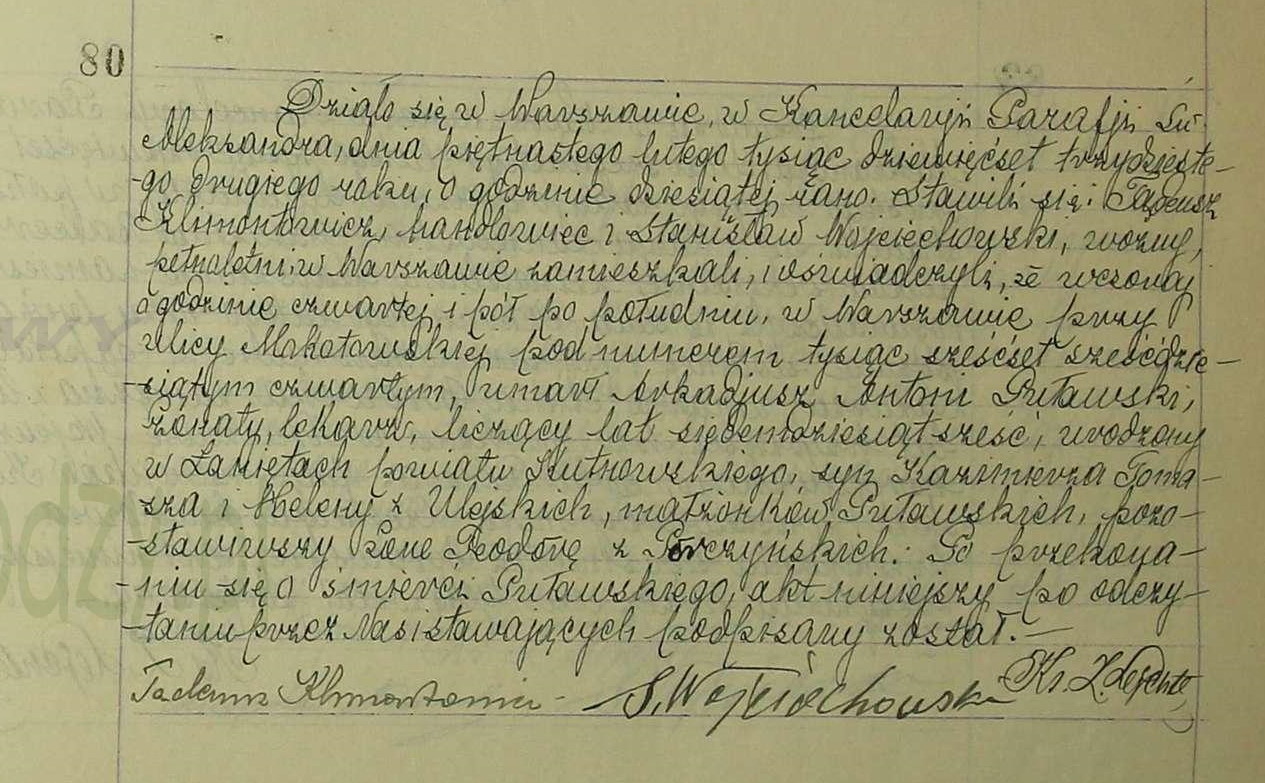 80
Działo się w Warszawie, w Kancelaryji Parafji Św.
Aleksandra, dnia piętnastego lutego tysiąc dziewięćset trzydzieste-
-go drugiego roku, o godzinie dziesiątej rano. Stawili się: Tadeusz
Klimontowicz, handlowiec i Stanisław Wojciechowski, woźny,
pełnoletni, w Warszawie zamieszkali, i oświadczyli, że wczoraj
o godzinie czwartej i pół po południu, w Warszawie przy
ulicy Mokotowskiej pod numerem tysiąc sześćset sześćdzie-
-siątym czwartym, umarł Arkadjusz Antoni Puławski,
żonaty, lekarz, liczący lat siedemdziesiąt sześć, urodzony
w Łaniętach powiatu Kutnowskiego, syn Kazimierza Toma-
sza i Heleny z Ulejskich, małżonków Puławskich, pozo-
-stawiwszy żonę Teodorę z Porczyńskich. Po przekona-
-niu się o śmierci Puławskiego, akt niniejszy po odczy-
-taniu przez Nas i stawających podpisany został.—
Tadeusz Klimontowicz S. Wojciechowski Ks.